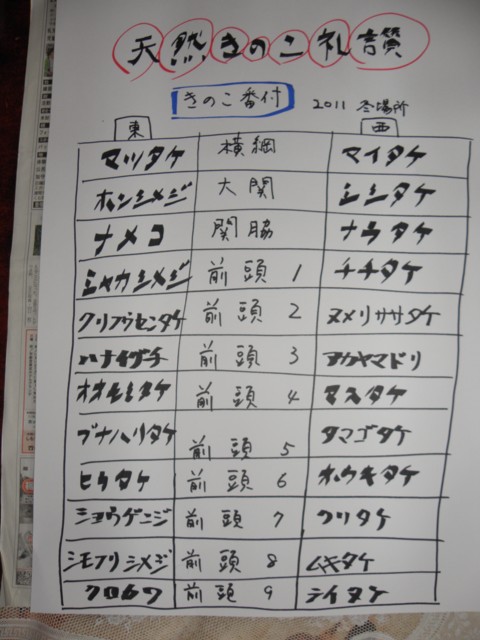 天然きのこ礼讃
きのこ番付 2011 冬場所
東 西
マツタケ 横綱 マイタケ
ホンシメジ 大関 シシタケ
ナメコ 関脇 ナラタケ
シャカシメジ 前頭 1 チチタケ
クリフウセンタケ 前頭 2 ヌメリササタケ
ハナイグチ 前頭 3 アカヤマドリ
オオモミタケ 前頭 4 マスタケ
ブナハリタケ 前頭 5 タマゴタケ
ヒラタケ 前頭 6 ホウキタケ
ショウゲンジ 前頭 7 クリタケ
シモフリシメジ 前頭 8 ムキタケ
クロカワ 前頭 9